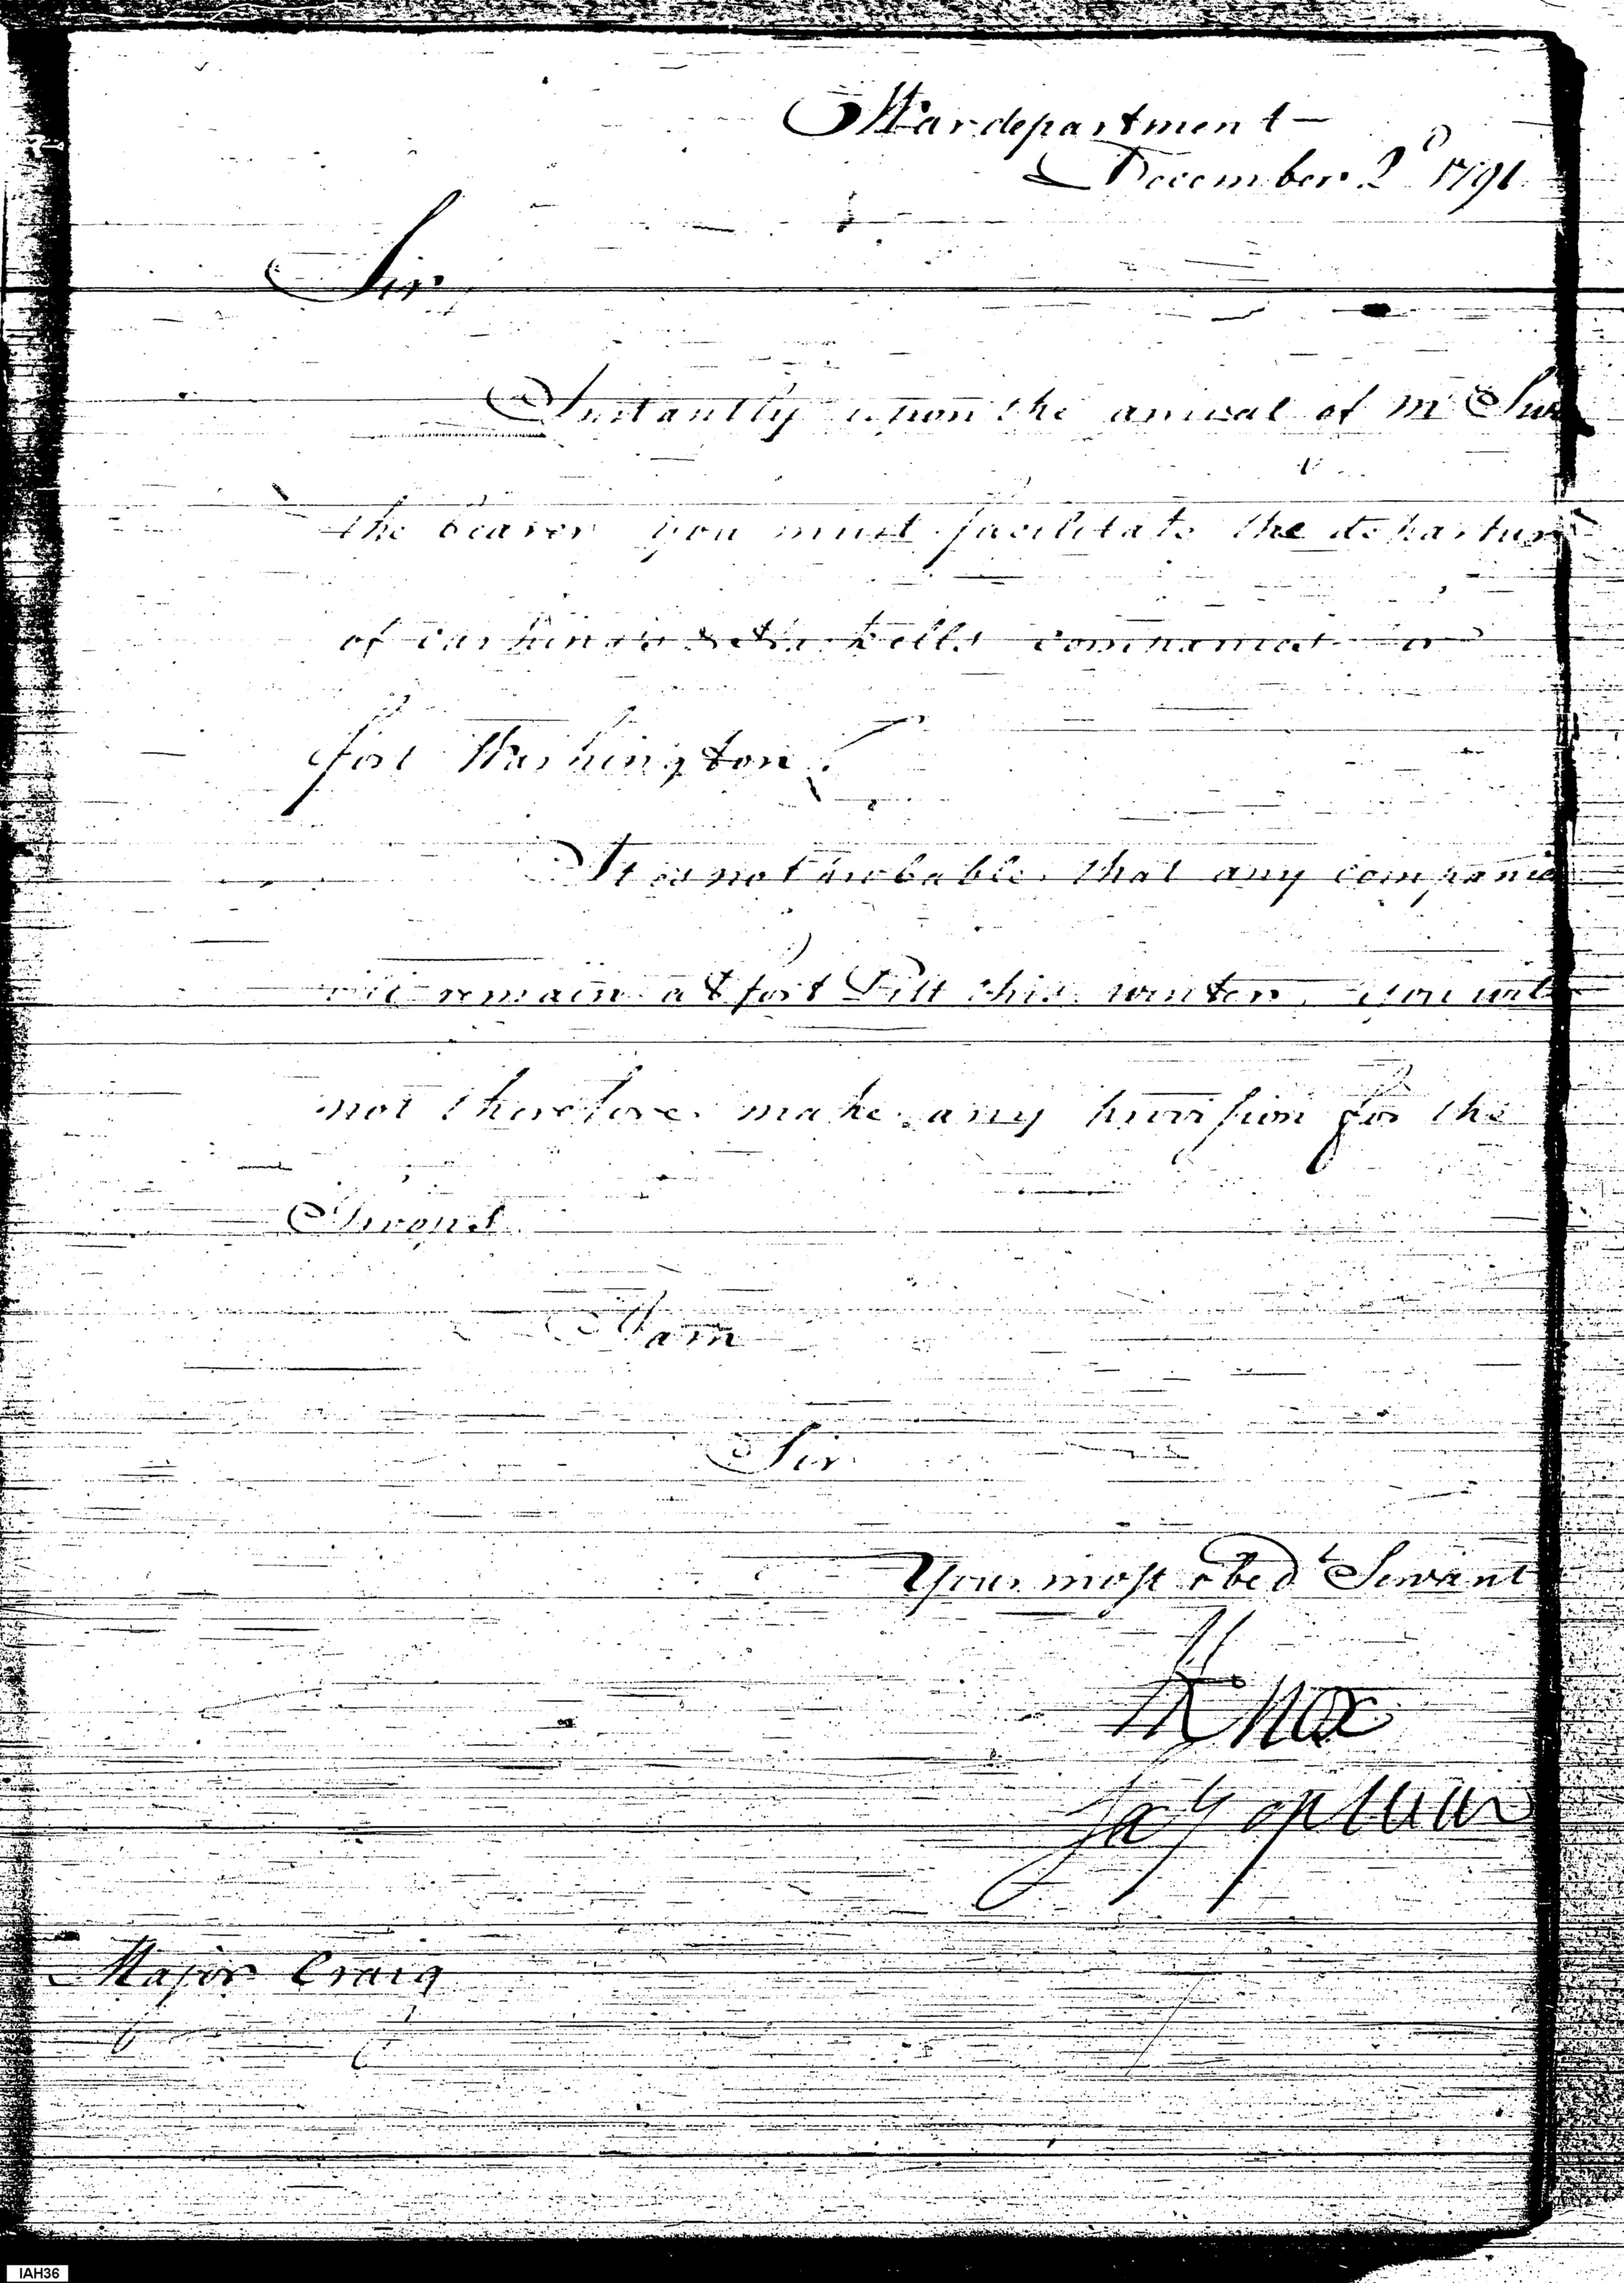 War department —
December 2d 1791
Sir
Instantly upon the arrival of Mr
the bearer you must facilitate the departure
of Cushings & Haskells companies
fort Washington.
It is not probable that any companies
will remain at fort Pitt this winter, you will
not therefore make any provision for the
Troops.
I am
Sir
Your most obedt Servant
HKnox
Secy of War
Major Craig
IAH36